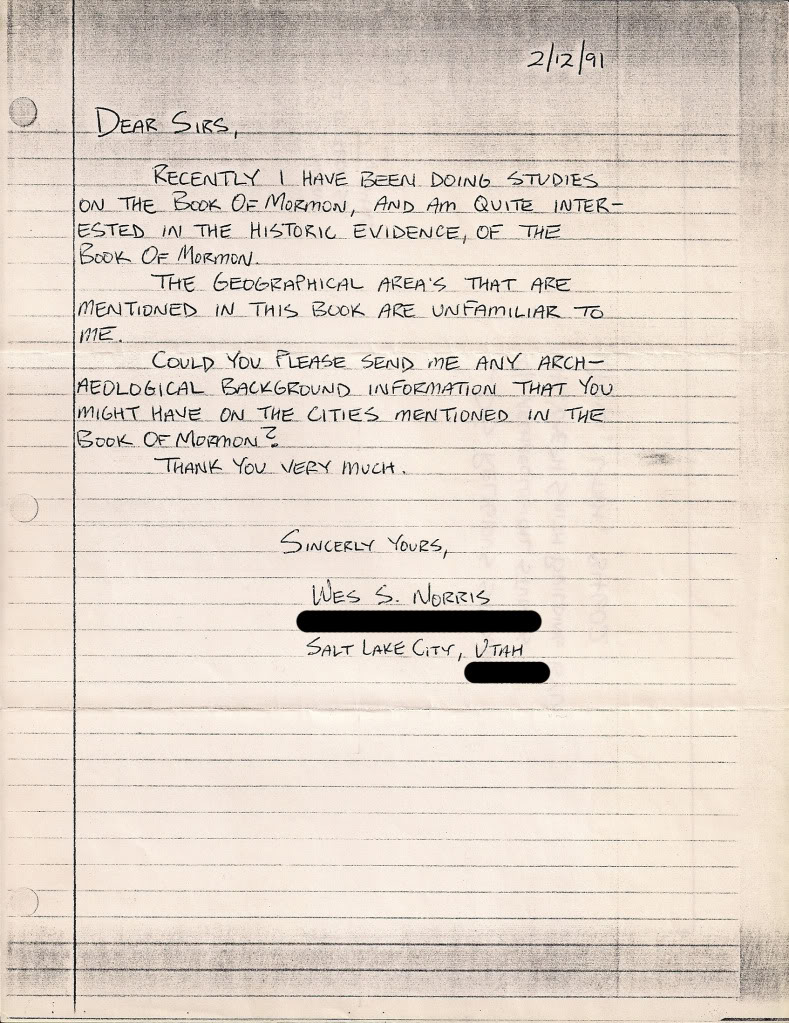 2/12/91
DEAR SIRS,
RECENTLY I HAVE BEEN DOING STUDIES
ON THE BOOK OF MORMON, AND AM QUITE INTER-
ESTED IN THE HISTORIC EVIDENCE, OF THE
BOOK OF MORMON.
THE GEOGRAPHICAL AREA'S THAT ARE
MENTIONED IN THIS BOOK ARE UNFAMILIAR TO
ME.
COULD YOU PLEASE SEND ME ANY ARCH-
AEOLOGICAL BACKGROUND INFORMATION THAT YOU
MIGHT HAVE ON THE CITIES MENTIONED IN THE
BOOK OF MORMON?
THANK YOU VERY MUCH.
SINCERLY YOURS,
WES S. NORRIS
SALT LAKE CITY, UTAH